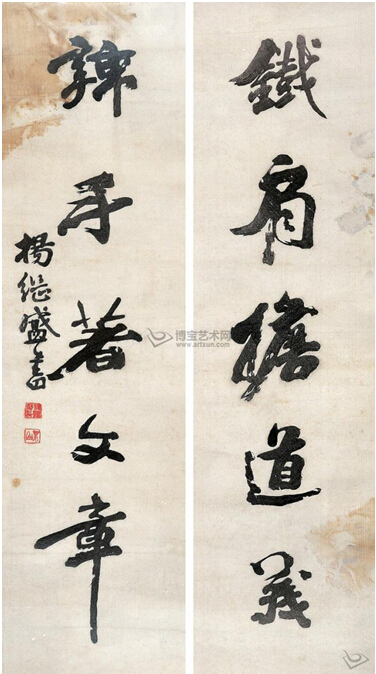 鐵肩擔道義
辣手著文章
楊继盛書
博宝艺术网
www.artxun.com